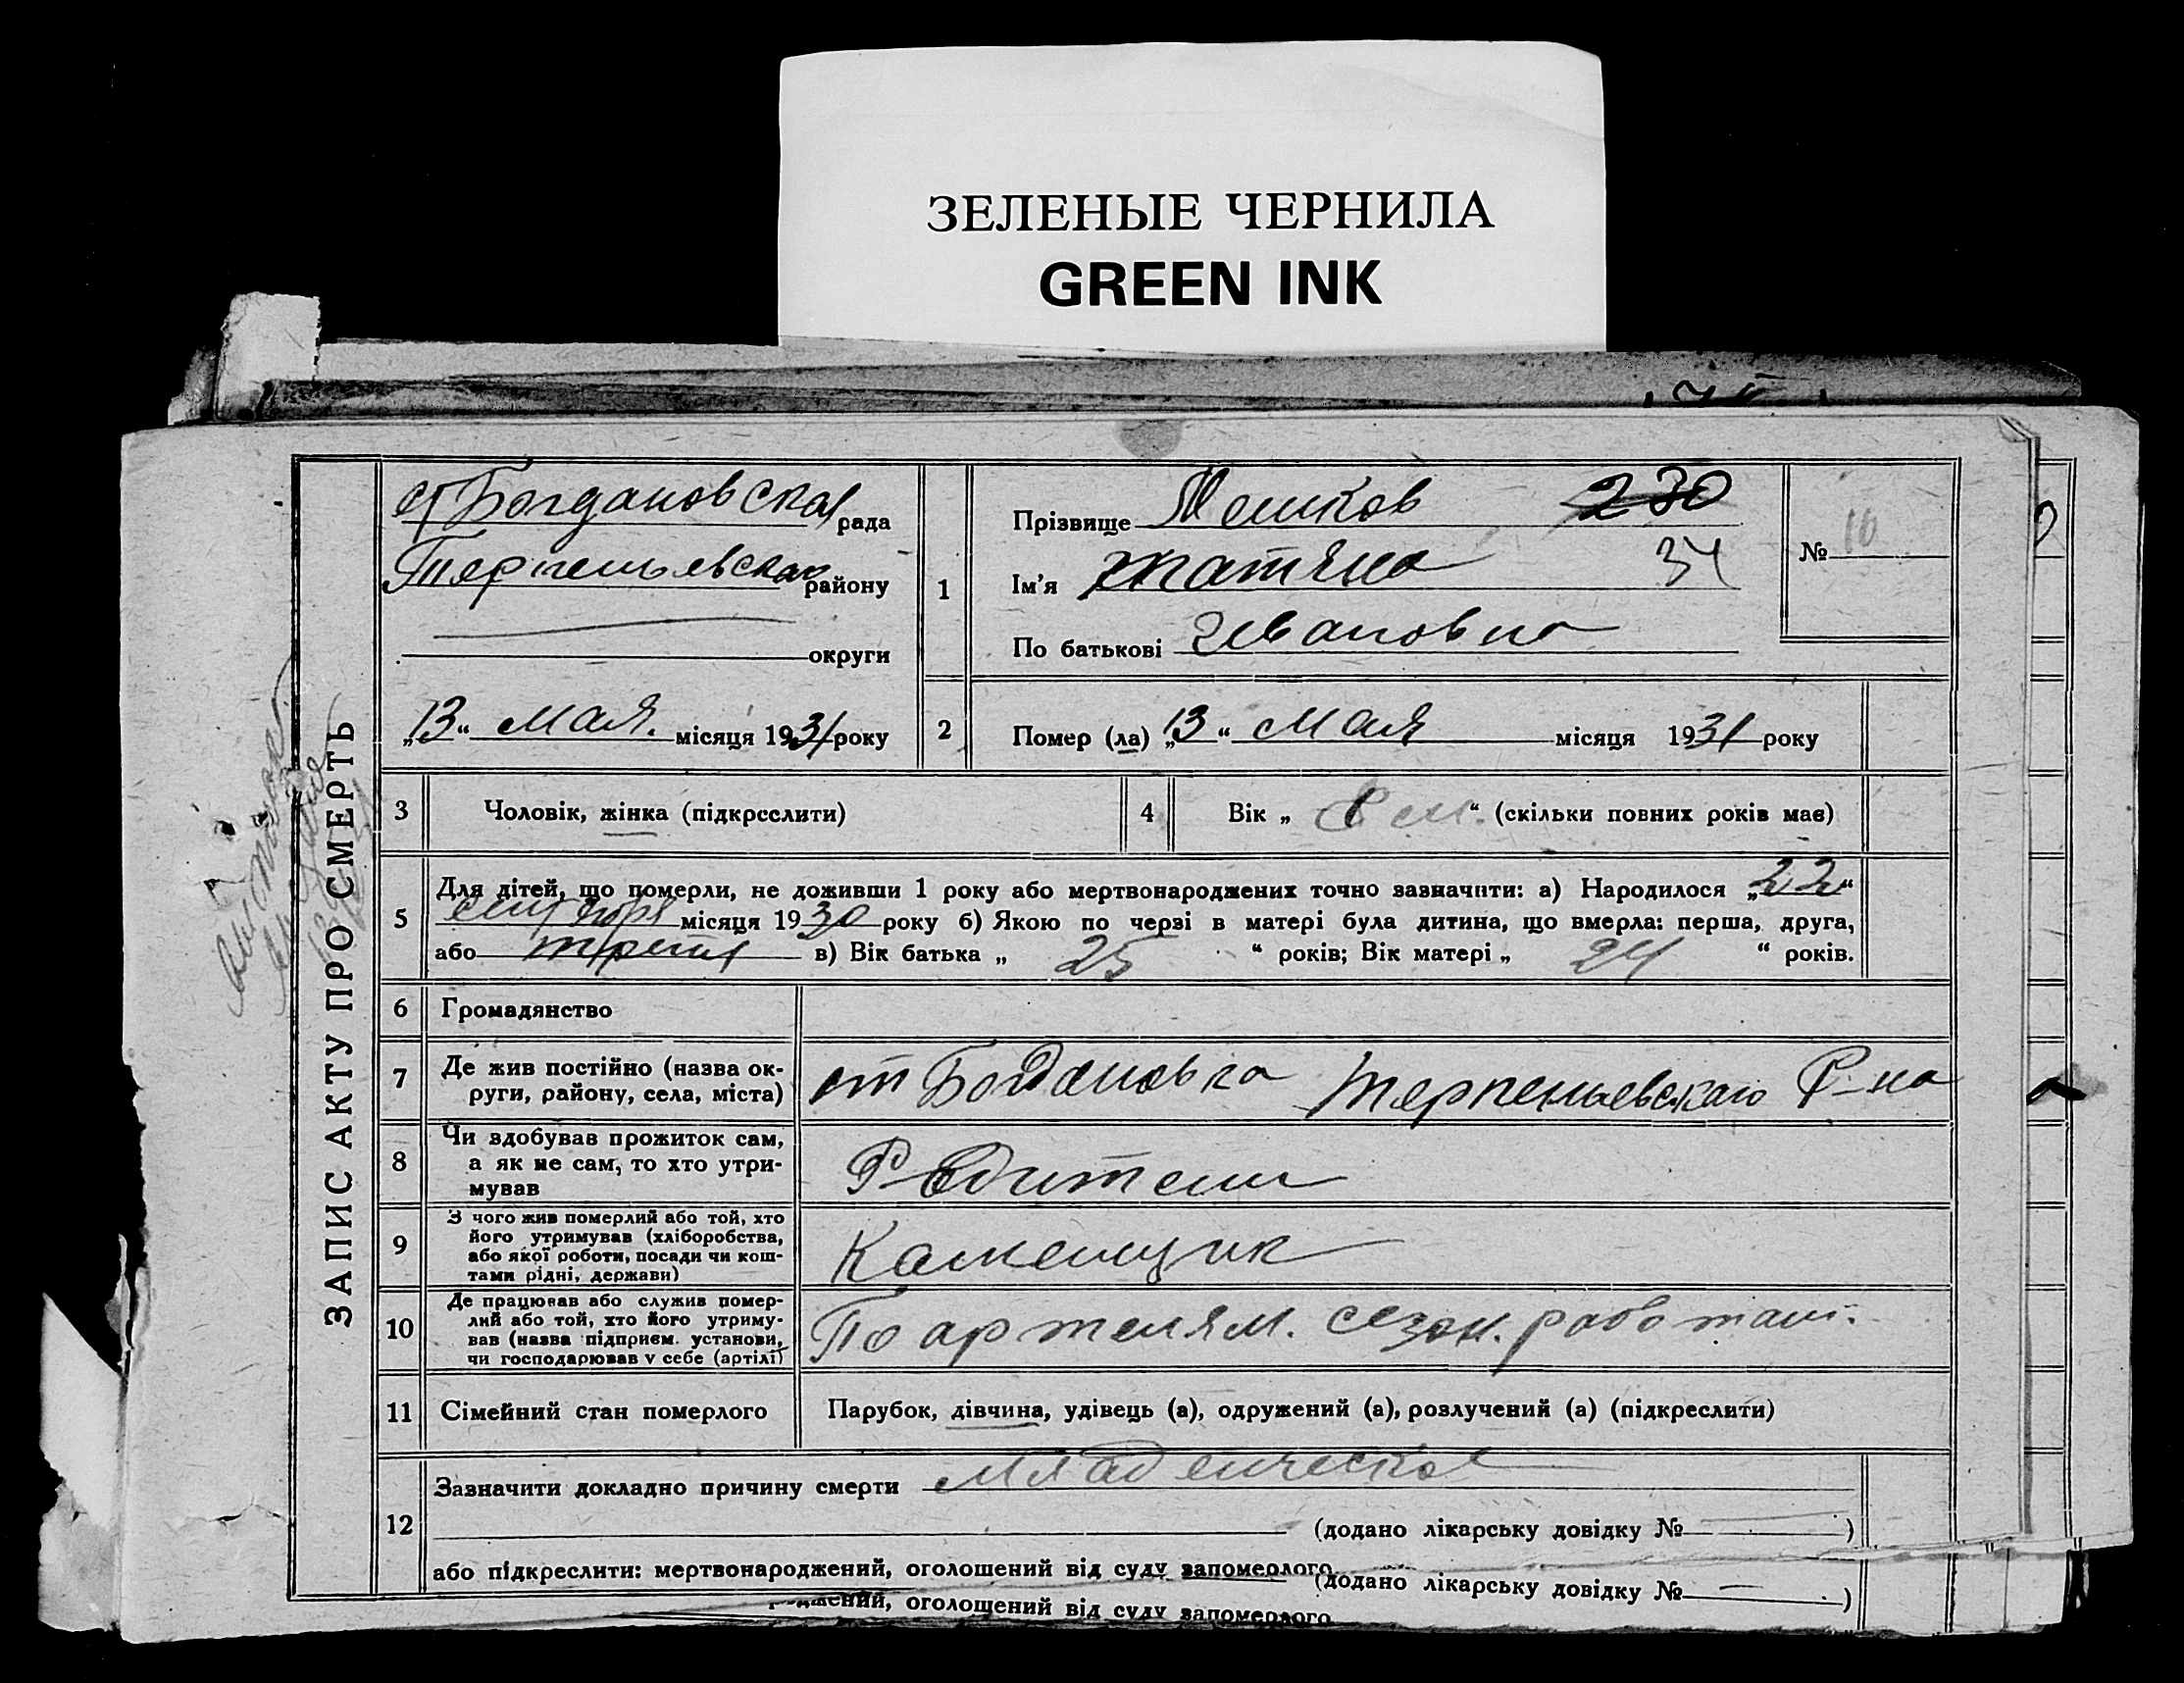 ЗЕЛЕНЫЕ ЧЕРНИЛА
GREEN INK
ЗАПИС АКТУ ПРО СМЕРТЬ
ст Богдановская рада
района
району
округи
„13“ мая. місяця 1931 року
1
Прізвище 230
Ім'я 34
По батькові Ивановна
№ 10
2 Помер (ла) „13“ мая місяця 1931 року
3 Чоловік, жінка (підкреслити)
4 Вік „ 8 м. “ (скільки повних років має)
5 Для дітей, що померли, не доживши 1 року або мертвонароджених точно зазначити: а) Народилося „22“
місяця 1930 року б) Якою по черзі в матері була дитина, що вмерла: перша, друга,
або третя в) Вік батька „ 25 “ років; Вік матері „ 24 “ років.
6 Громадянство
7 Де жив постійно (назва ок-
руги, району, села, міста)
ст Богдановка Терпеньевскаго Р-на
8 Чи здобував прожиток сам,
а як не сам, то хто утри-
мував
Родители
9 З чого жив померлий або той, хто
його утримував (хліборобства,
або якої роботи, посади чи кош-
тами рідні, держави)
Каменщик
10 Де працював або служив помер-
лий або той, хто його утриму-
вав (назва підприєм. установи,
чи господарював у себе (артілі)
По артелям. сезон. работаш.
11 Сімейний стан померлого
Парубок, дівчина, удівець (а), одружений (а), розлучений (а) (підкреслити)
12 Зазначити докладно причину смерти младенческая
(додано лікарську довідку № )
або підкреслити: мертвонароджений, оголошений від суду запомерлого
(додано лікарську довідку № )
оголошений від суду запомерлого